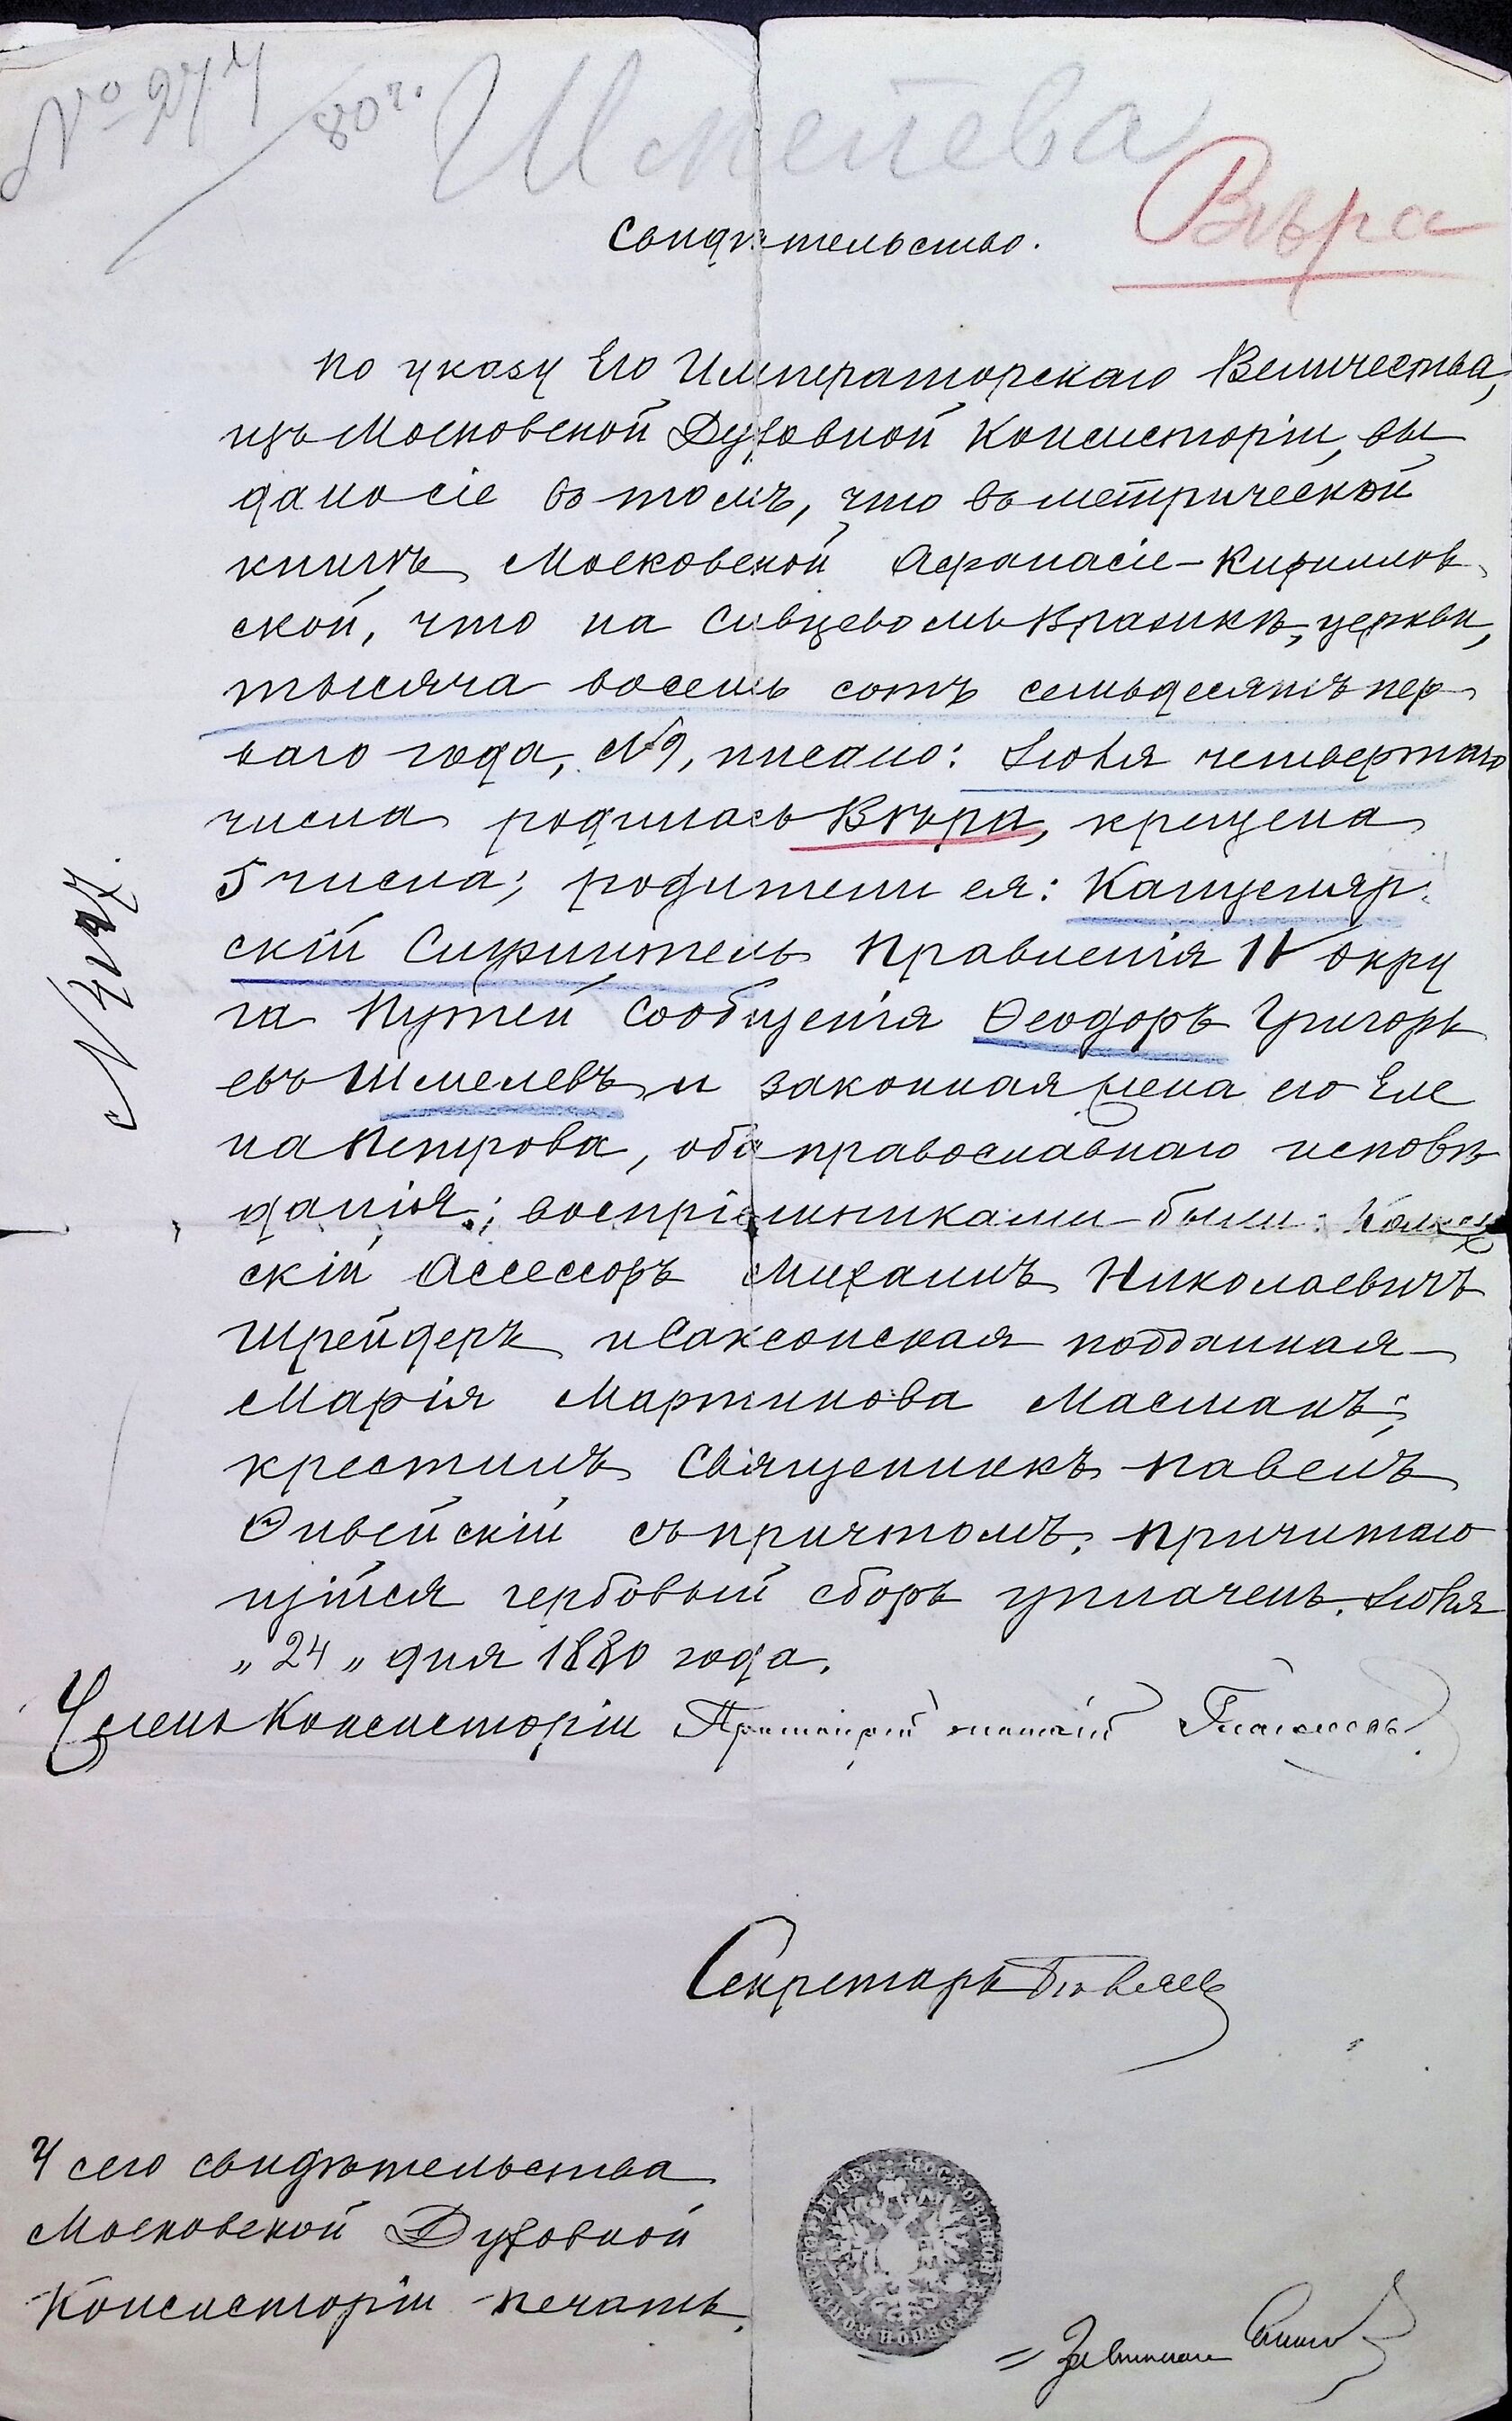 № 277
80 г.
Шмелева
Вѣра
Свидѣтельство.
По указу Его Императорскаго Величества,
изъ Московской Духовной Консисторіи, вы
дано сіе въ томъ, что въ метрической
книгѣ Московской Афанасіе-Кирилловъ
ской, что на Сивцевомъ Вражкѣ, церкви,
тысяча восемь сотъ семьдесятъ пер
ваго года, №9, писано: Іюня четвертаго
числа родилась Вѣра, крещена
5 числа; родители ея: Канцеляр-
скій Служитель Правленія IV окру
га Путей Сообщенія Ѳеодоръ Григорь
евъ Шмелевъ и законная жена его Еле
на Петрова, оба православнаго исповѣ
данія; воспріемниками были: Коллеж
скій Ассессоръ Михаилъ Николаевичъ
Шрейдеръ и Саксонская подданная
Марія Мартинова Масманъ;
крестилъ Священникъ Павелъ
Ѳивейскій съ причтомъ. Причитаю
щійся гербовый сборъ уплаченъ. Іюня
„24„ дня 1880 года.
Членъ Консисторіи Протоіерей
Секретарь
У сего свидѣтельства
Московской Духовной
Консисторіи печать.